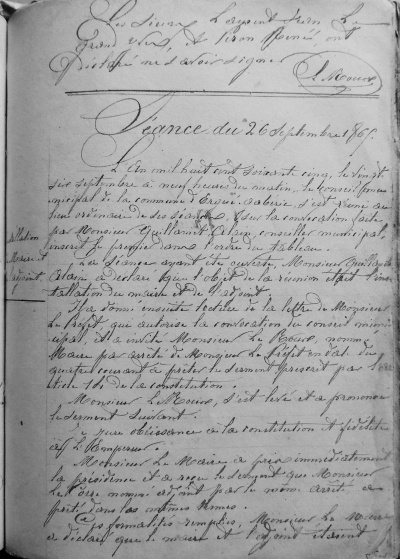 Les sieurs Laurent Jean Le
Grand Yves, et Riou René, ont
déclaré ne savoir signer
Séance du 26 Septembre 1865.
L'an mil huit cent soixante cinq, le vingt
six septembre à neuf heures du matin, le Conseil mu
nicipal de la commune d'Ergué-Gabéric s'est réuni au
lieu ordinaire de ses séances, sur la convocation faite
par Monsieur Guillaume Alain, conseiller municipal,
inscrit le premier dans l'ordre du tableau.
La séance ayant été ouverte, Monsieur Guillaume
Alain a déclaré que l'objet de la réunion était l'ins
tallation
Maire et
l'adjoint
tallation du maire et de l'adjoint.
Il a donné ensuite lecture de la lettre de Monsieur
le Préfet, qui autorise la convocation du conseil muni
cipal, et a invité Monsieur Le Roux, nommé
Maire par arrêté de Monsieur le Préfet en date du
quatre courant à prêter le serment prescrit par l'ar
ticle 16 de la constitution.
Monsieur Le Roux, s'est levé et a prononcé
le serment suivant.
"Je jure obéissance à la constitution et fidélité
à l'Empereur.
Monsieur le Maire a pris immédiatement
la présidence et a reçu le serment que Monsieur
nommé adjoint par le même arrêté a
prêté dans les mêmes termes.
Ces formalités remplies, Monsieur le Maire
a déclaré que le maire et l'adjoint étaient